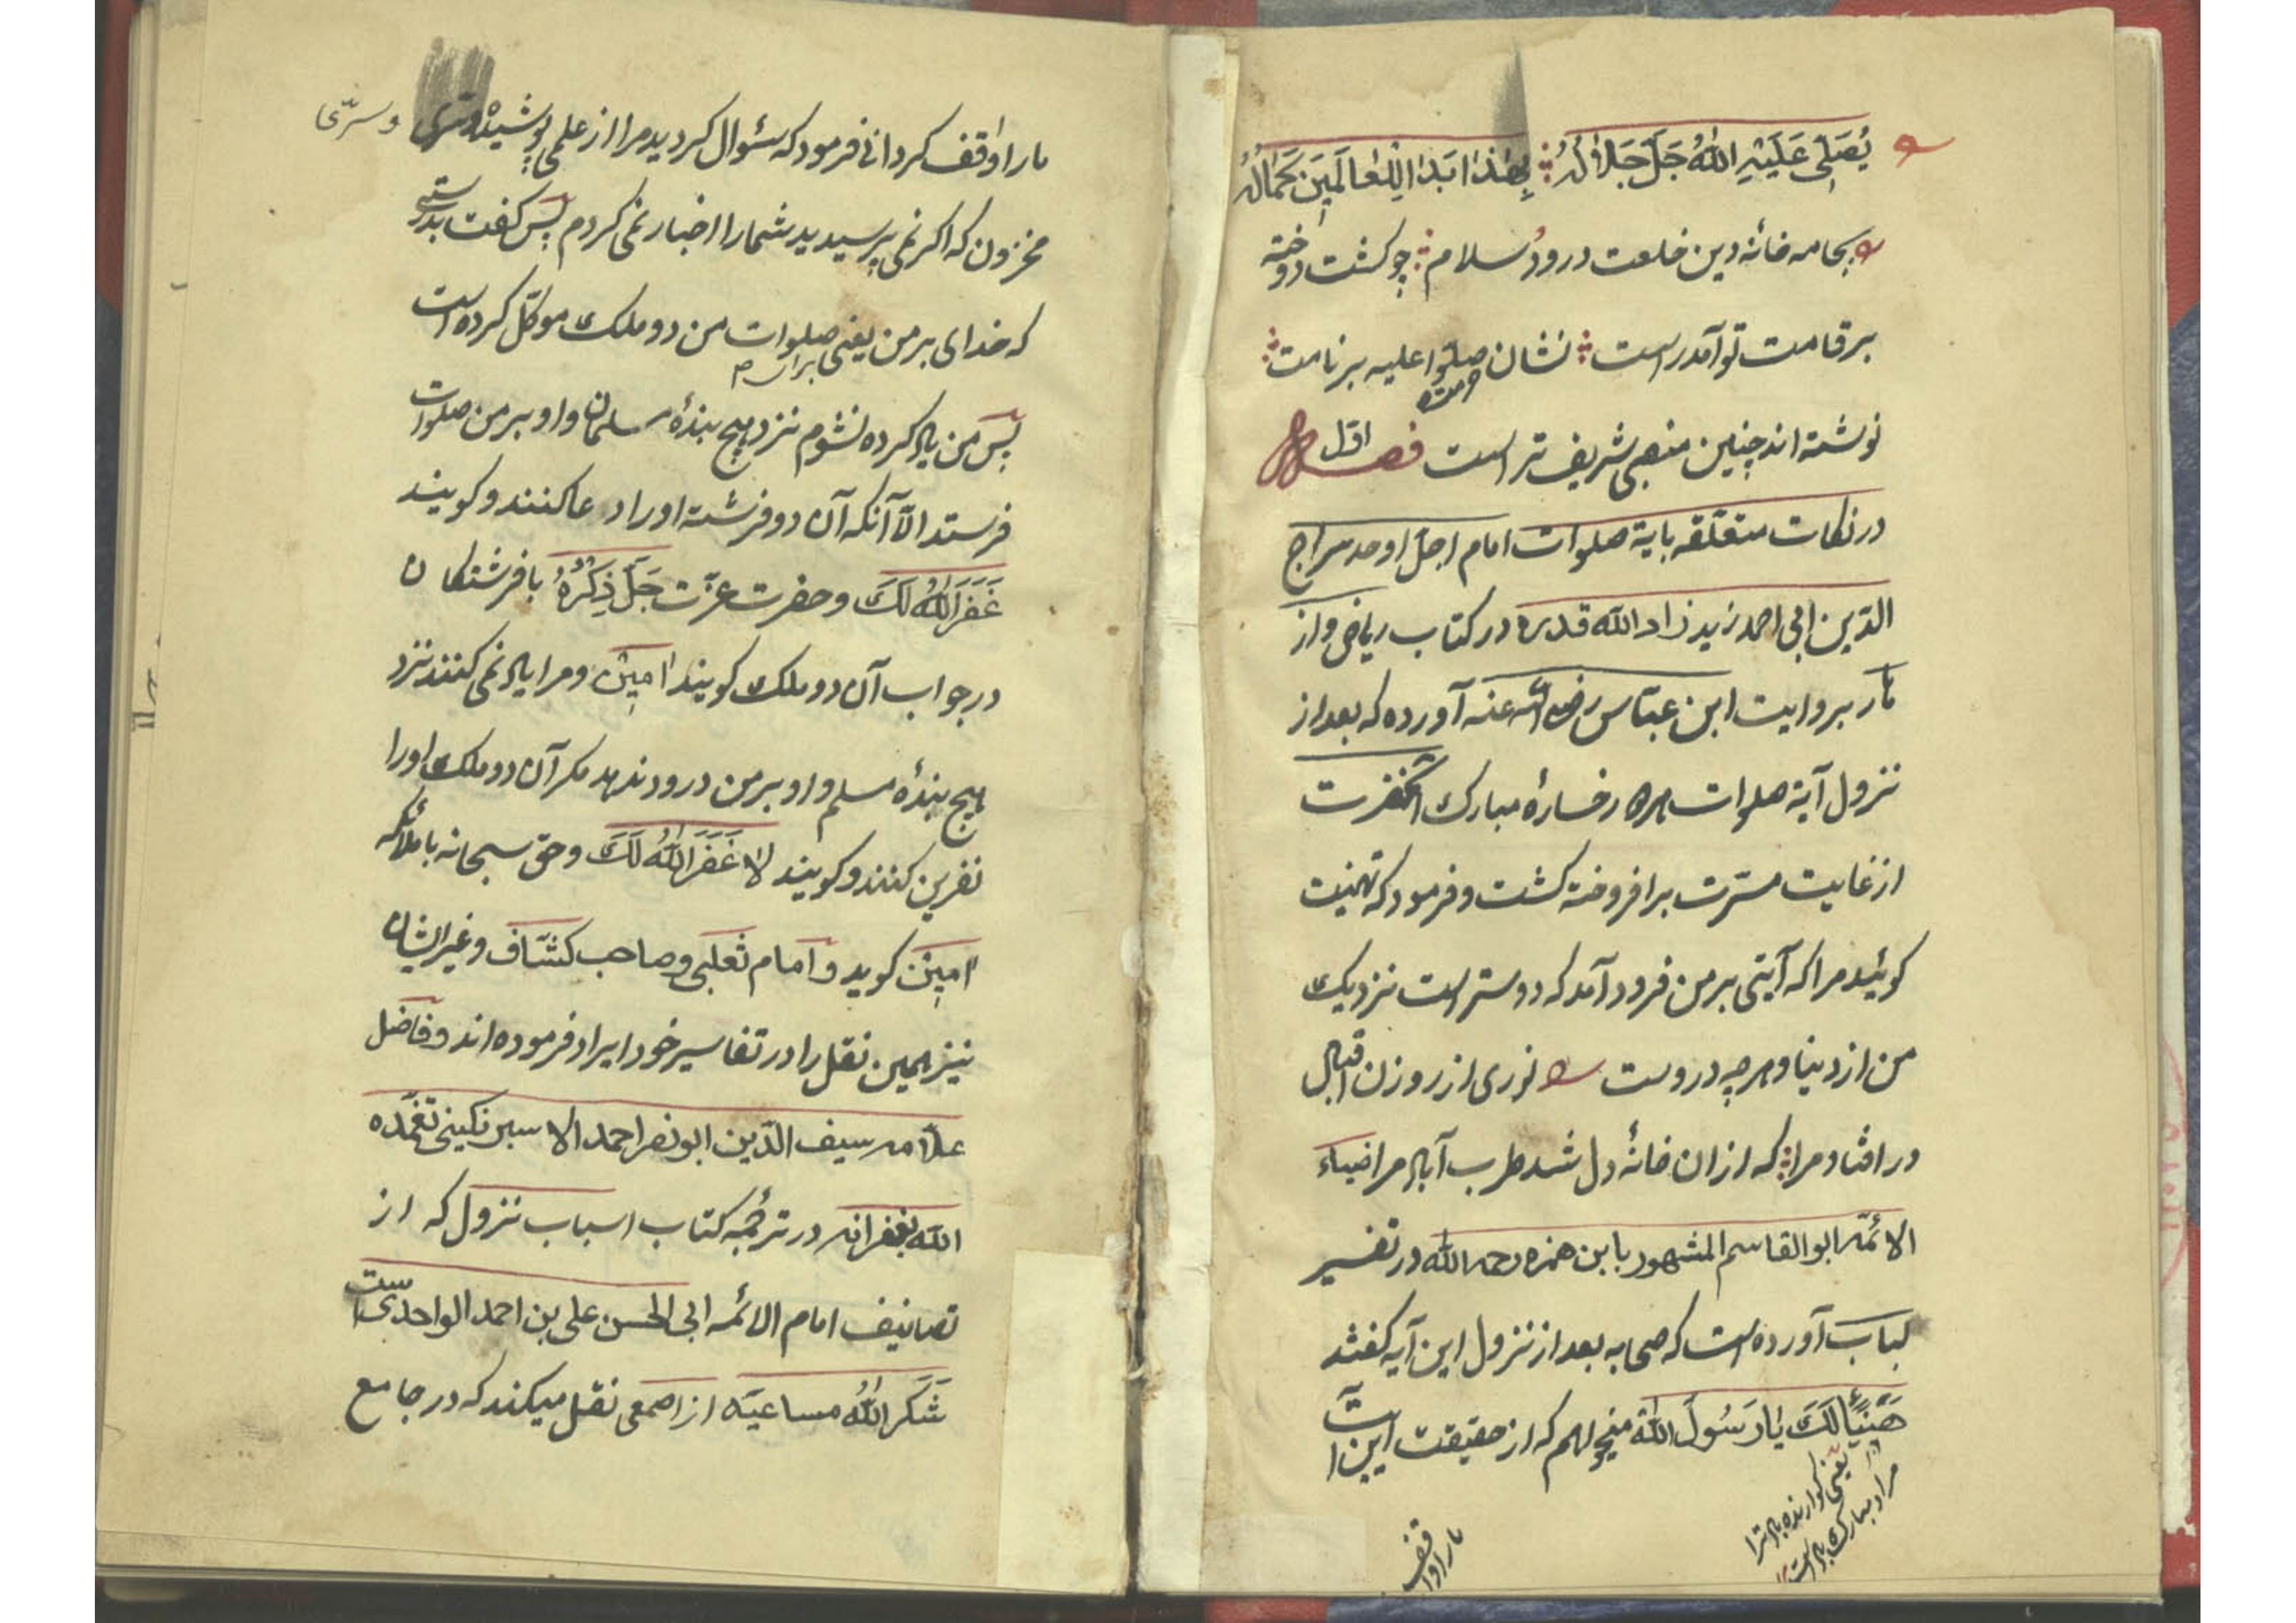 یُصَلِّی عَلَیْهِ اللّٰهُ جَلَّ جَلَالُهُ بِهٰذَا بَدَا لِلْعَالَمِینَ جَمَالُهُ
بجامه خانه دین خلعت درود و سلام چو کشت دوخته
بر قامت تو آمد راست نشان صلّوا علیه بر نامت
نوشته اند چنین منصبی شریف تر است فصل اول
در نکات متعلقه بایة صلوات امام اجل اوحد سراج
الدین ابی احمد زید زاد الله قدره در کتاب ریاض و از
بروایت ابن عباس رضی الله عنه آورده که بعد از
نزول آیة صلوات رخسارهٔ مبارک آنحضرت
از غایت مسرّت بر افروخته کشت و فرمود که تهنیت
کوئید مرا که آیتی بر من فرود آمد که دوستر است نزدیک
من از دنیا و هرچه دروست نوری از روزن اقبال
در افتاد مرا که ازان خانهٔ دل شد طرب آباد مرا ضیاء
الائمّه ابو القاسم المشهور بابن حمزه رحمه الله در تفسیر
لباب آورده است که صحابه بعد از نزول این آیه کفتند
هَنِیْأً لَكَ یَا رَسُولَ اللّٰه میخواهم که از حقیقت این آیت
یعنی کوارنده باد ترا
مراد مبارک باد است
ما را واقف
ما را واقف کردانی فرمود که سئوال کردید مرا از علمی پوشیده و سرّی
و سرّی
مخزون که اکر نمی پرسیدید شما را اخبار نمی کردم پس کفت بدرستی
که خدای بر من یعنی صلوات من دو ملک موکّل کرده است
برای
پس من یاد کرده نشوم نزد هیچ بندهٔ مسلمان و او بر من صلوات
فرستد الّا آنکه آن دو فرشته او را دعا کنند و کویند
غَفَرَ اللّٰهُ لَكَ و حضرت عزّت جَلَّ ذِکْرُهُ با فرشتکان
در جواب آن دو ملک کویند اٰمِیْن و مرا یاد نمی کنند نزد
هیچ بندهٔ مسلم و او بر من درود ندهد مکر آن دو ملک او را
نفرین کنند و کویند لَا غَفَرَ اللّٰهُ لَكَ و حق سبحانه با ملائکه
اٰمِیْن کوید و امام ثعلبی و صاحب کشّاف و غیر ایشان
نیز همین نقل را در تفاسیر خود ایراد فرموده اند و فاضل
علّامه سیف الدّین ابو نصر احمد تغمّده
الله بغفرانه در ترجمهٔ کتاب اسباب نزول که از
تصانیف امام الائمه ابی الحسن علی بن احمد الواحدی است
شَکَرَ اللّٰهُ مساعیَه از اصمعی نقل میکند که در جامع